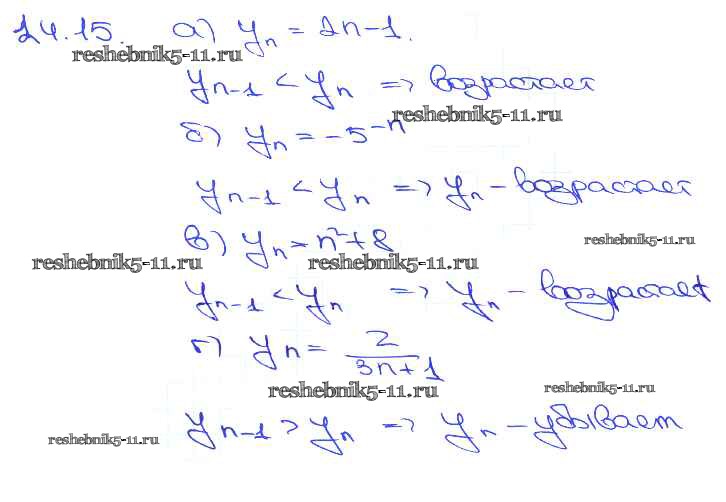 24.15. а) yₙ = 2n-1.
reshebnik5-11.ru
yₙ₋₁ < yₙ => возрастает
reshebnik5-11.ru
б) yₙ = -5⁻ⁿ
yₙ₋₁ < yₙ => yₙ - возрастает
в) yₙ = n²+8
reshebnik5-11.ru
reshebnik5-11.ru reshebnik5-11.ru
yₙ₋₁ < yₙ => yₙ - возрастает
г) yₙ = 2/(3n+1)
reshebnik5-11.ru reshebnik5-11.ru
yₙ₋₁ > yₙ => yₙ - убывает
reshebnik5-11.ru